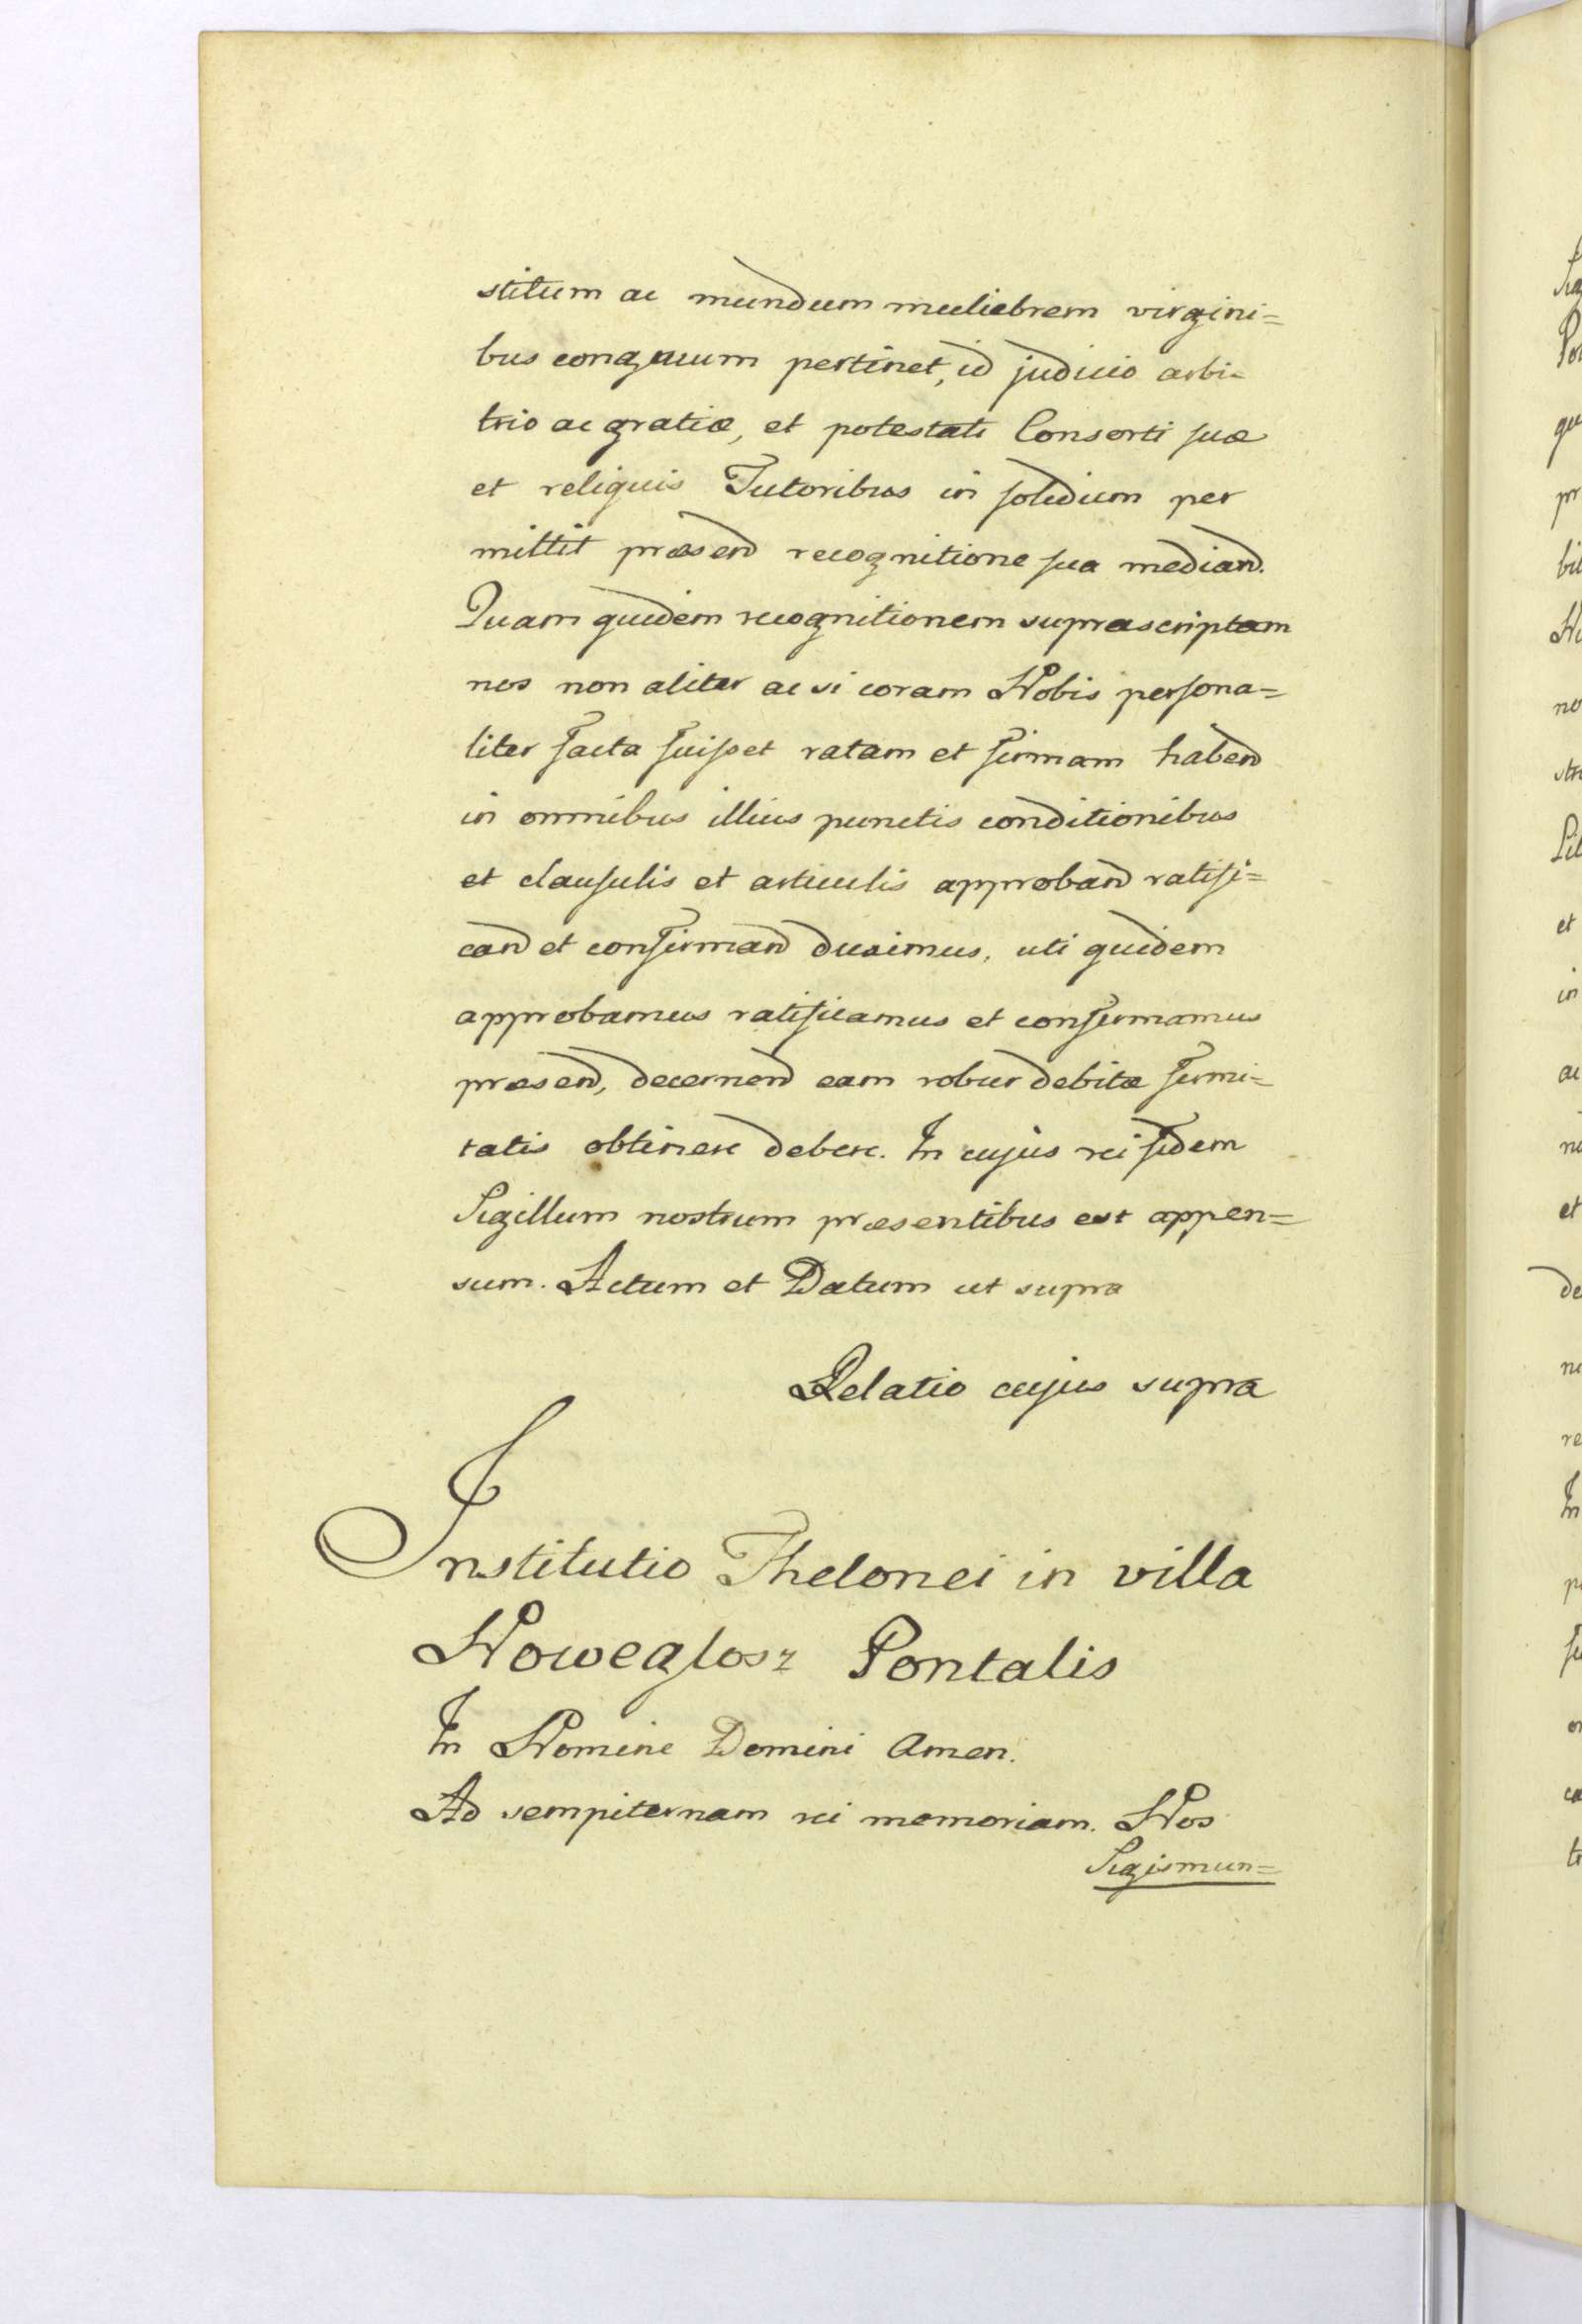 stitum ac mundum muliebrem virgini=
bus congruum pertinet, id judicio arbi=
trio ac gratiæ, et potestati Consorti suæ
et reliquis Tutoribus in solidum per
mittit præsend recognitione sua mediand.
Quam quidem recognitionem suprascriptam
nos non aliter ac si coram Nobis persona=
liter facta fuisset ratam et firmam habend
in omnibus illius punctis conditionibus
et clausulis et articulis approband ratifi=
cand et confirmand duximus, uti quidem
approbamus ratificamus et confirmamus
præsend, decernend eam robur debitæ firmi=
tatis obtinere debere. In cujus rei fidem
Sigillum nostrum præsentibus est appen=
sum. Actum et Datum ut supra
Relatio cujus supra
Institutio Thelonei in villa
Noweglosz Pontalis
In Nomine Domini Amen.
Ad sempiternam rei memoriam. Nos
Sigismun=